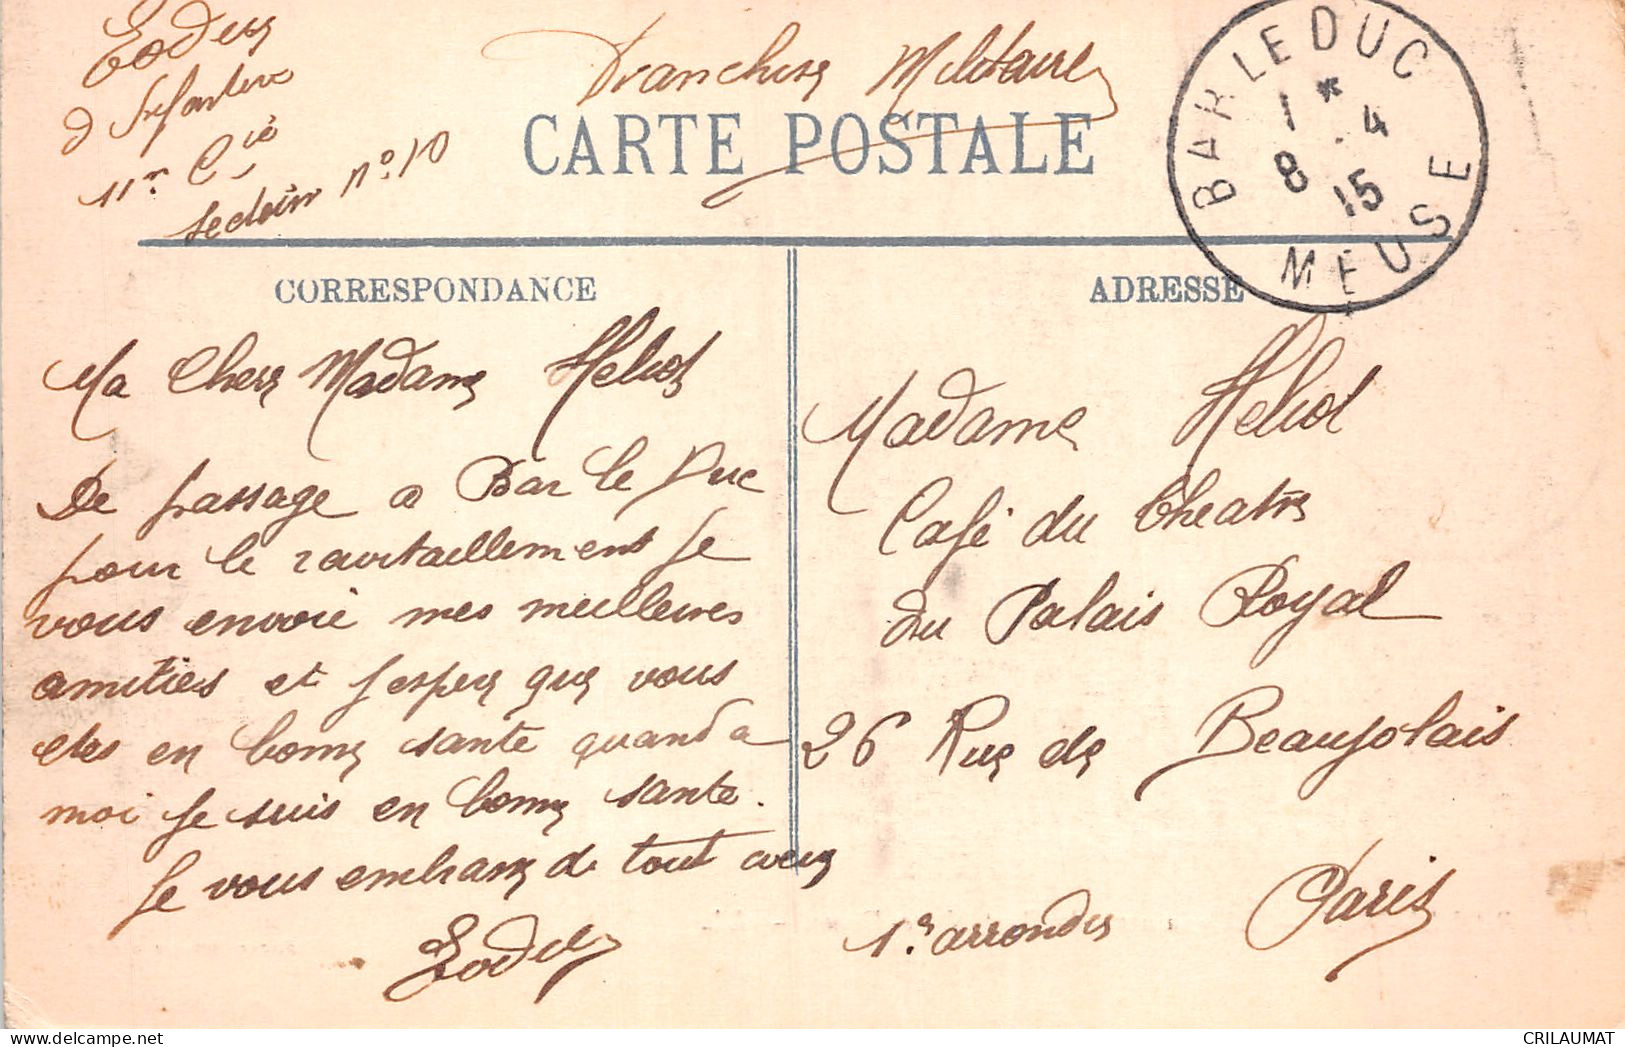 d Infanterie
11me Cie
Section no. 10
Franchise Militaire
CARTE POSTALE
BAR LE DUC
1 * 4
8 15
MEUSE
CORRESPONDANCE
Ma Chere Madame Heliot
De passage a Bar le Duc
pour le ravitaillement je
vous envoie mes meilleures
amities et j espere que vous
etes en bonne sante quand a
moi je suis en bonne sante.
Je vous embrasse de tout coeur
ADRESSE
Madame Heliot
Café du theatre
du Palais Royal
26 Rue de Beaujolais
Paris
1er arrondis
CRILAUMAT